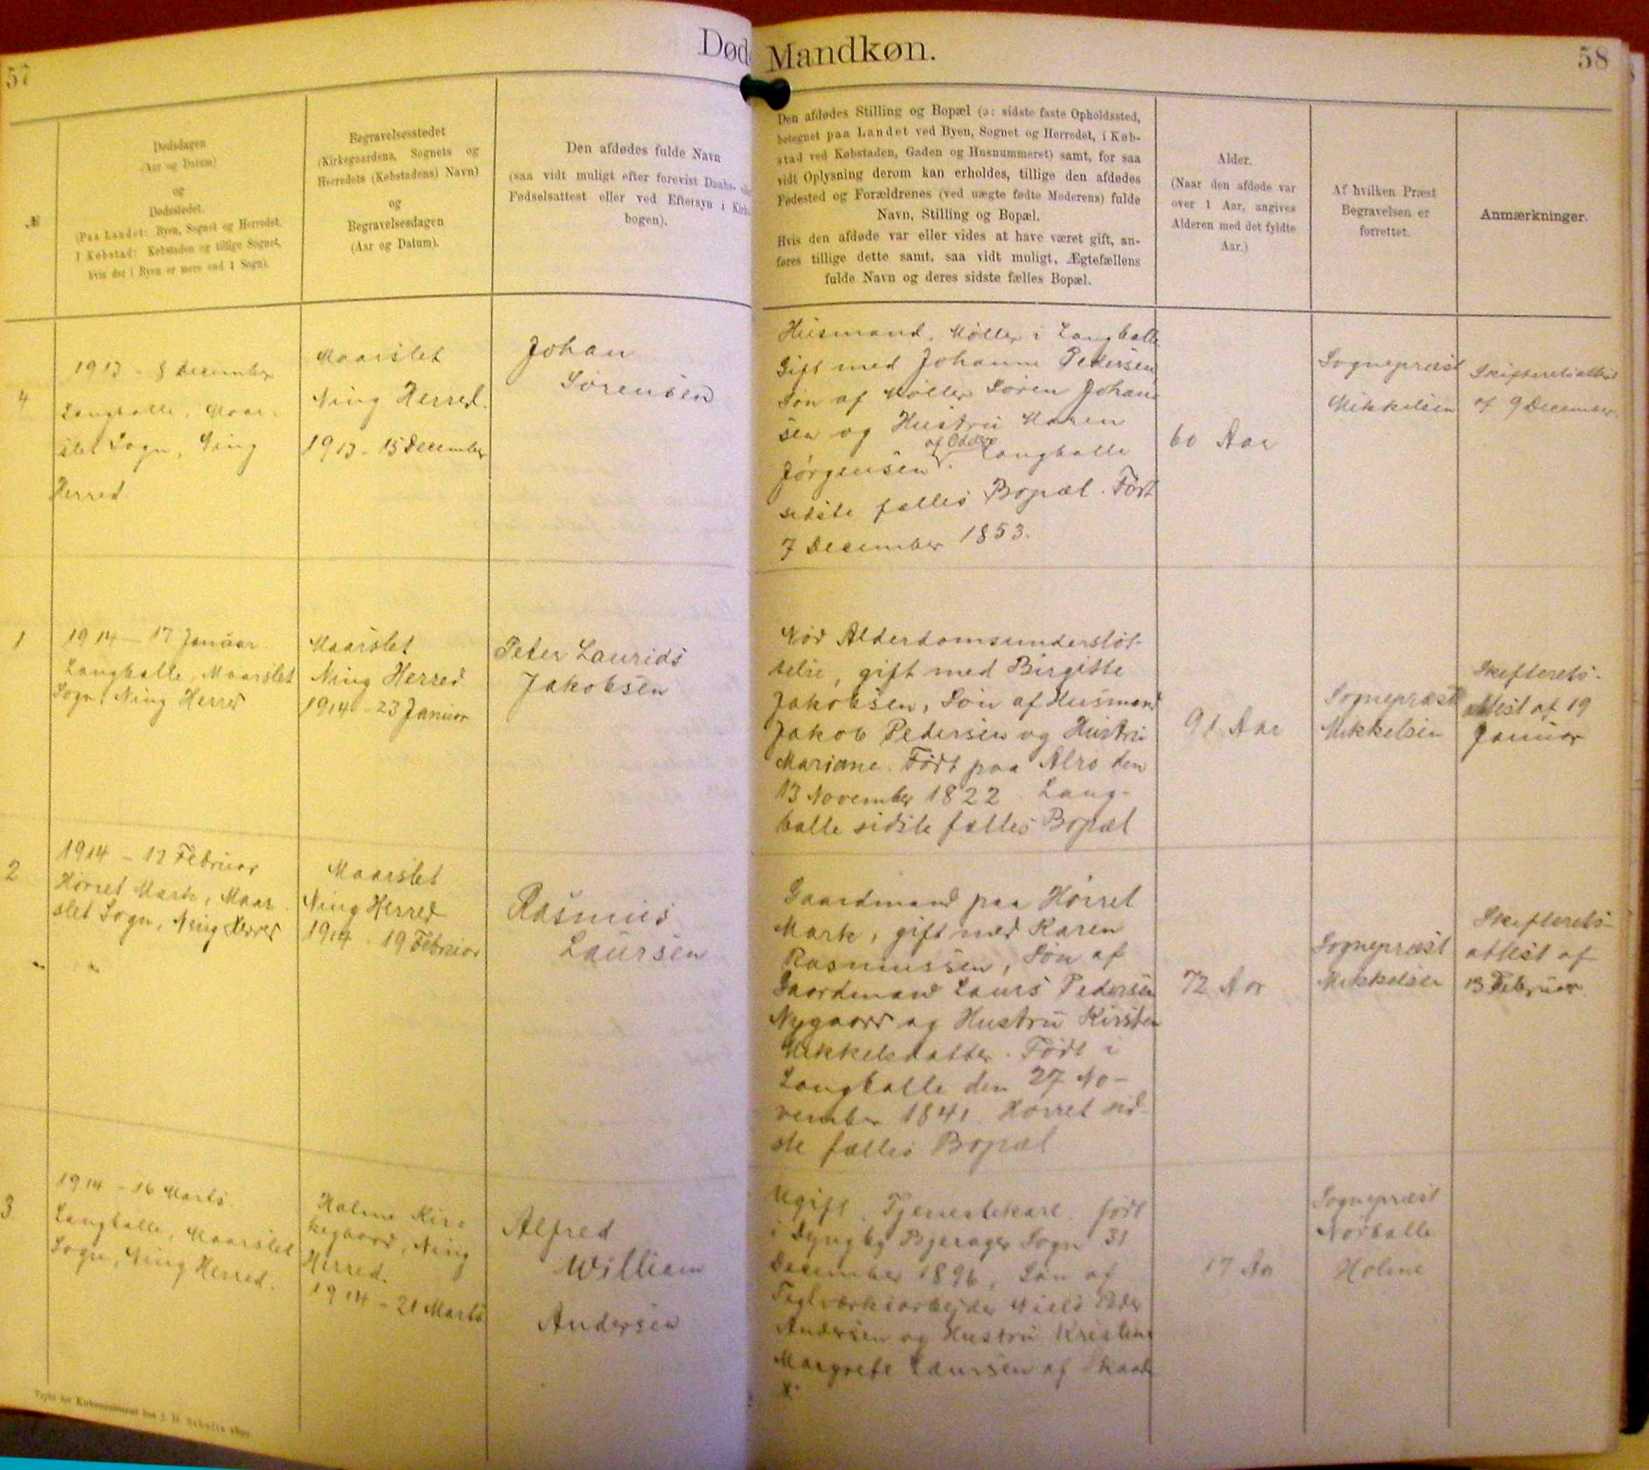 57
Død
Mandkøn.
58
№
Dødsdagen
(Aar og Datum)
og
Dødsstedet.
(Paa Landet: Byen, Sognet og Herredet,
I Købstad: Købstaden og tillige Sognet,
hvis der i Byen er mere end 1 Sogn).
Begravelsesstedet
(Kirkegaardens, Sognets og
Herredets (Købstadens) Navn)
og
Begravelsesdagen
(Aar og Datum).
Den afdødes fulde Navn
(saa vidt muligt efter forevist Daabs-
Fødselsattest eller ved Eftersyn i Kirke-
bogen).
Den afdødes Stilling og Bopæl (ɔ: sidste faste Opholdssted,
betegnet paa Landet ved Byen, Sognet og Herredet, i Køb-
stad ved Købstaden, Gaden og Husnummeret) samt, for saa
vidt Oplysning derom kan erholdes, tillige den afdødes
Fødested og Forældrenes (ved uægte fødte Moderens) fulde
Navn, Stilling og Bopæl.
Hvis den afdøde var eller vides at have været gift, an-
føres tillige dette samt, saa vidt muligt, Ægtefællens
fulde Navn og deres sidste fælles Bopæl.
Alder.
(Naar den afdøde var
over 1 Aar, angives
Alderen med det fyldte
Aar.)
Af hvilken Præst
Begravelsen er
forrettet.
Anmærkninger.
4
1913 - 8 December
Langballe, Maar-
slet Sogn, Ning
Herred
Maarslet
Ning Herred.
1913 - 15 December
Johan
Sørensen
Husmand, Møller i Langballe
Gift med Johanne Pedersen
Søn af Møller Søren Johan
sen og Hustru Maren
Jørgensen af Odder. Langballe
sidste fælles Bopæl. Født
7 December 1853.
60 Aar
Sognepræst
Mikkelsen
Skifteretsattest
af 9 December.
1
1914 - 17 Januar
Langballe, Maarslet
Sogn, Ning Herred
Maarslet
Ning Herred
1914 - 23 Januar
Peter Laurids
Jakobsen
Nød Alderdomsunderstøt-
telse, gift med Birgitte
Jakobsen, Søn af Husmand
Jakob Pedersen og Hustru
Mariane. Født paa Alrø den
13 November 1822. Lang-
balle sidste fælles Bopæl
91 Aar
Sognepræst
Mikkelsen
Skifterets-
attest af 19
Januar
2
1914 - 12 Februar
Hørret Mark, Maar
slet Sogn, Ning Herred
Maarslet
Ning Herred
1914 - 19 Februar
Rasmus
Laursen
Gaardmand paa Hørret
Mark, gift med Karen
Rasmussen, Søn af
Gaardmand Laurs Pedersen
Nygaard og Hustru Kirsten
Mikkelsdatter. Født i
Langballe den 27 No-
vember 1841. Hørret sid-
ste fælles Bopæl
72 Aar
Sognepræst
Mikkelsen
Skifterets-
attest af
13 Februar
3
1914 - 16 Marts
Langballe, Maarslet
Sogn, Ning Herred.
Holme Kir-
kegaard, Ning
Herred.
1914 - 21 Marts
Alfred
William
Andersen
Ugift Tjenestekarl, født
i Dyngby Bjerager Sogn 31
December 1896, Søn af
Teglværksarbejder Niels Peder
Andersen og Hustru Kristine
Margrete Laursen af Skaade
17 Aar
Sognepræst
Nørballe
Holme
Trykt for Kirkeministeriet hos J. H. Schultz